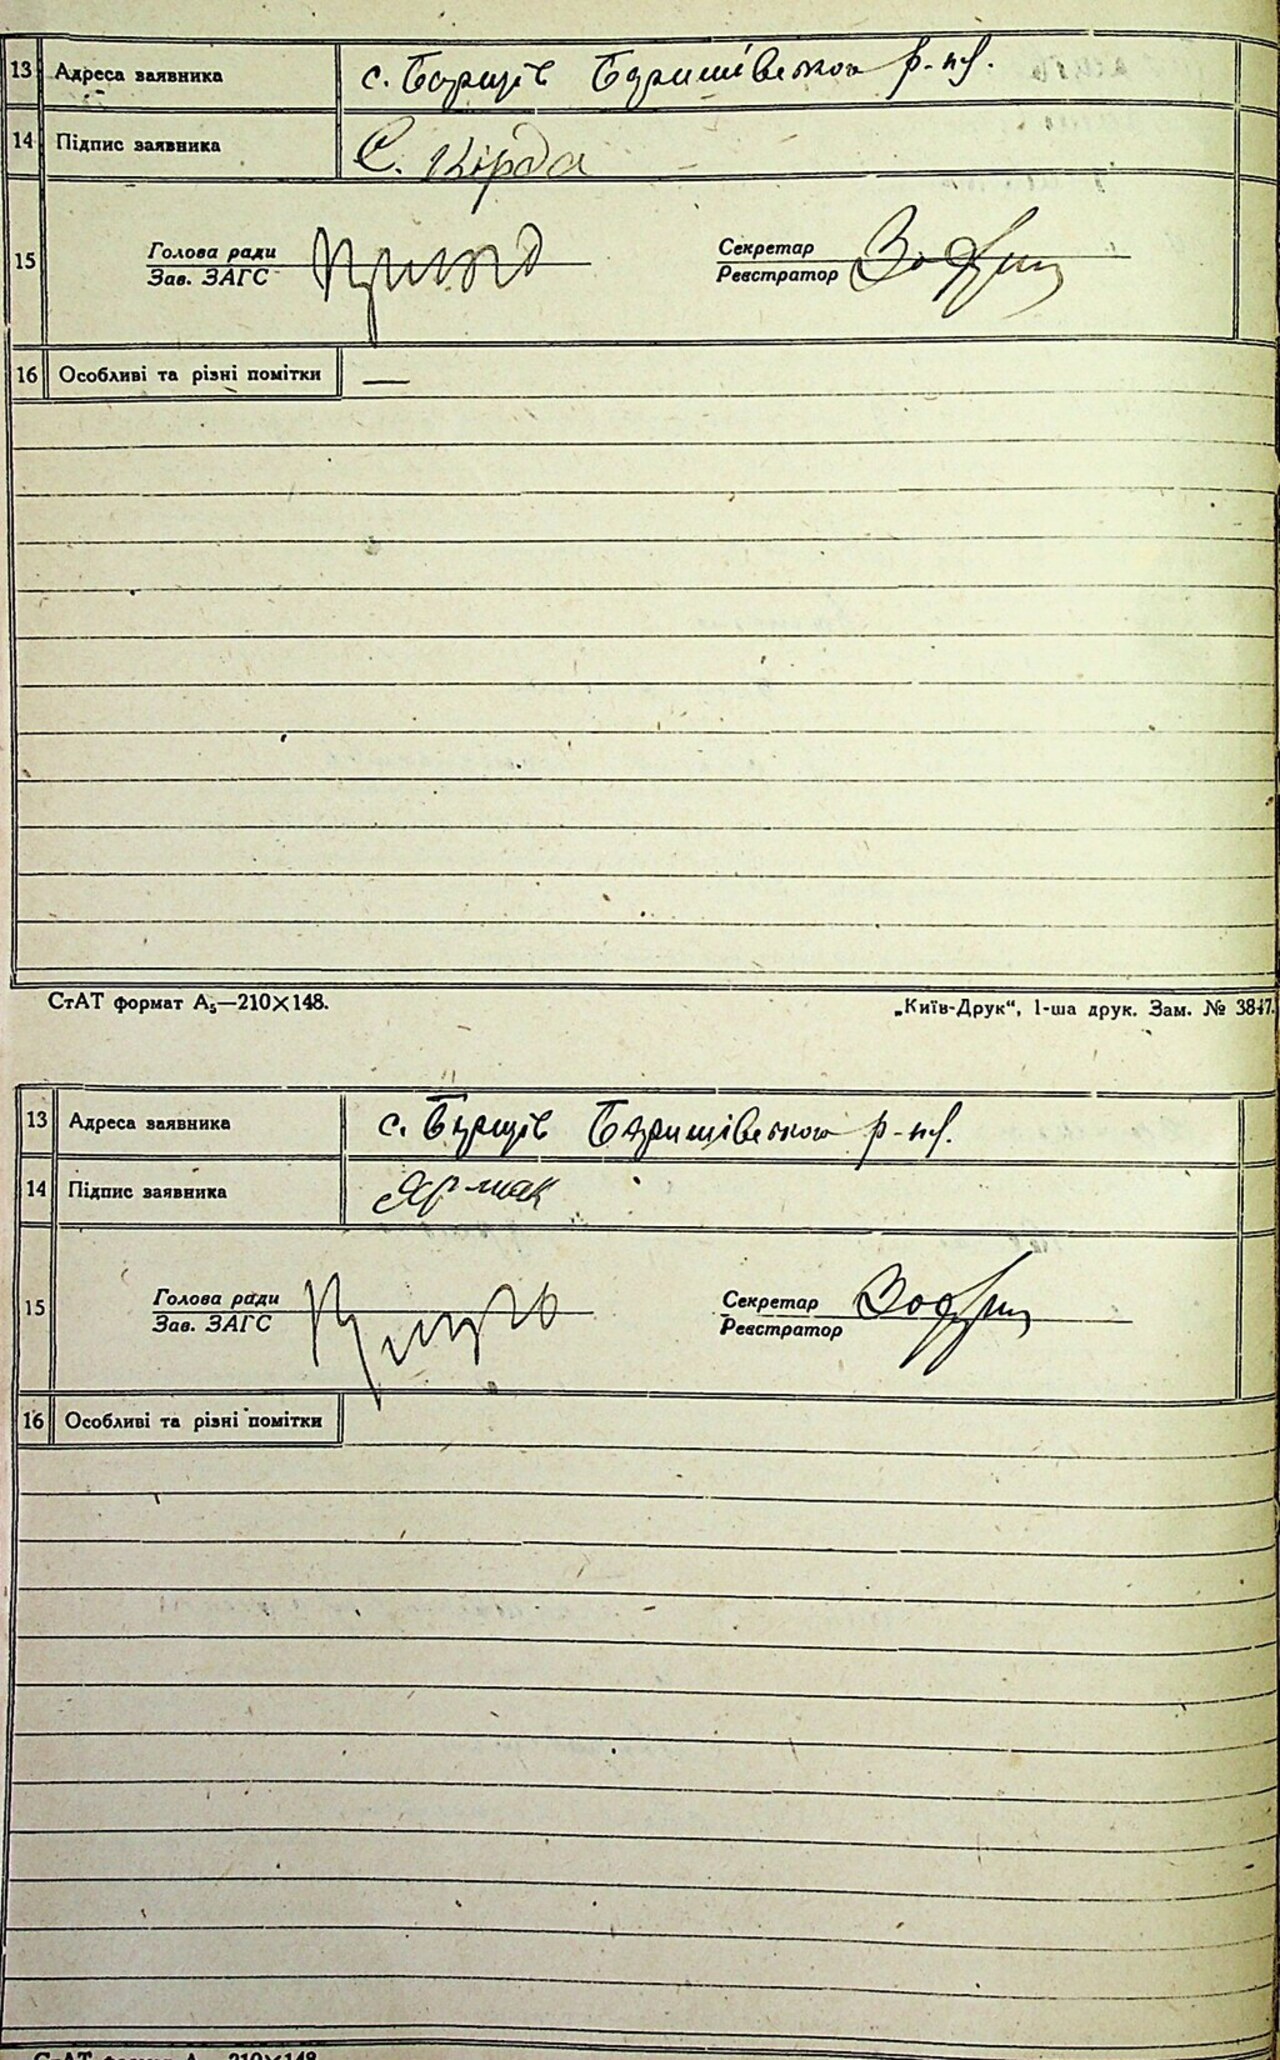 13 Адреса заявника с. Борщів Баришівського р-ну.
14 Підпис заявника С. Кірда
15 Голова ради Секретар
Зав. ЗАГС Реєстратор
16 Особливі та різні помітки —
СтАТ формат А₅—210×148. „Київ-Друк“, 1-ша друк. Зам. № 3847.
13 Адреса заявника с. Борщів Баришівського р-ну.
14 Підпис заявника Ярмак
15 Голова ради Секретар
Зав. ЗАГС Реєстратор
16 Особливі та різні помітки
СтАТ формат А₅—210×148.